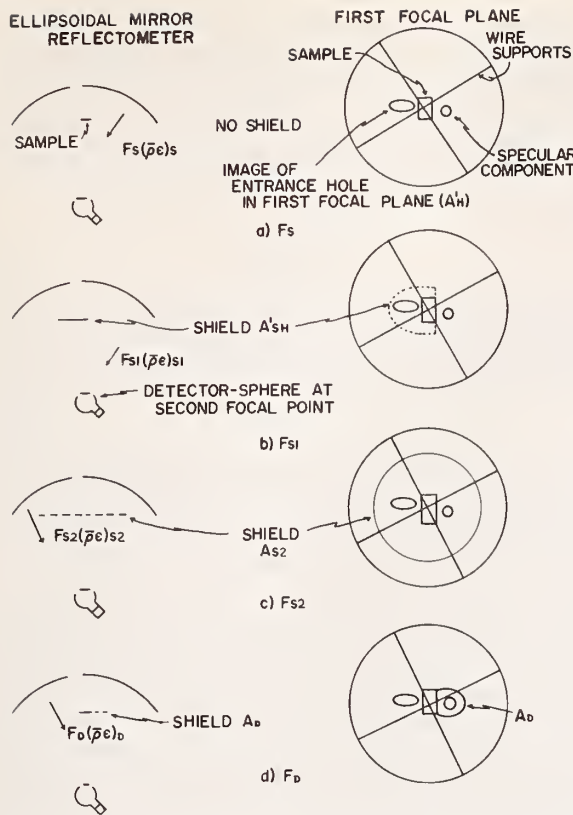 ELLIPSOIDAL MIRROR
REFLECTOMETER
FIRST FOCAL PLANE
SAMPLE
WIRE
SUPPORTS
SAMPLE
Fs(ρ̄ε)s
NO SHIELD
IMAGE OF
ENTRANCE HOLE
IN FIRST FOCAL PLANE (A'H)
SPECULAR
COMPONENT
a) Fs
SHIELD A'SH
Fs1(ρ̄ε)s1
DETECTOR-SPHERE AT
SECOND FOCAL POINT
b) Fs1
Fs2(ρ̄ε)s2
SHIELD
As2
c) Fs2
FD(ρ̄ε)D
SHIELD AD
AD
d) FD